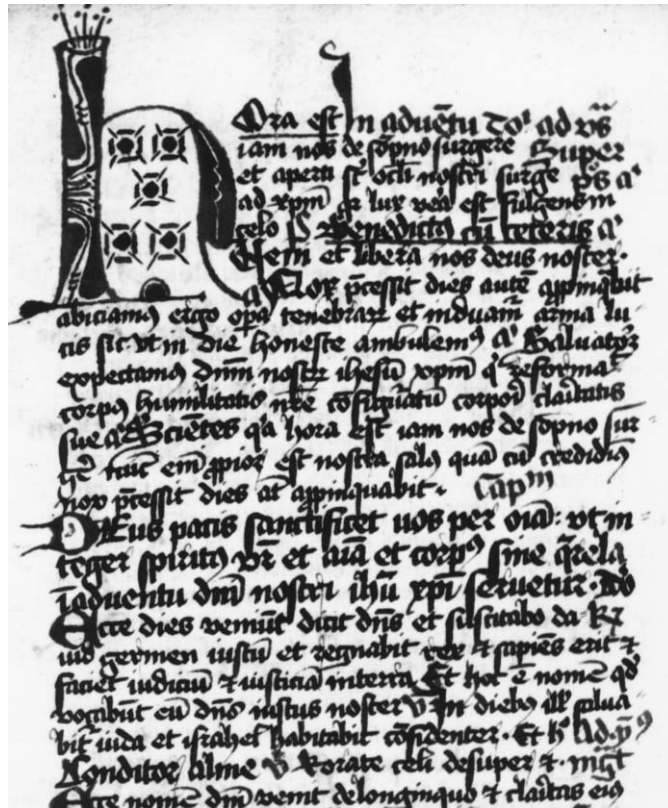 Hora est In advētu do' ad vṡ
iam nos de sōpno surgere Super
et aperti st' ocli nostri surgē ps a'
ad xpm̄ qa lux vēa est fulgens in
celo ps Benedictus cū ceteris a'
Vem et libera nos deus noster.
a' Nox p̄cessit dies autē appīquabit
abiciamus ergo opa tenebraꝝ et induam' arma lu
cis sic. vt in die honeste ambulem' a' Saluatorē
expectamus dnm̄ nostrꝝ ihesū xpm̄ q' reformat
corpus humilitatis nr̄e cōfiguratū corpori claritatis
sue a' Scientes qa hora est iam nos de sōpno sur
gē nūc em̄ ꝓpior est nostra salus quā cū credidim'
nox p̄cessit dies at appinquabit. Cap̄m
Deus pacis sanctificet uos per oīa: vt in
teger spiritus vr̄ et aīa et corp' sine q̄rela
ī aduentu dnī nostri ihū xpī seruetur. Do
Ecce dies veniūt dicit dn̄s et suscitabo da
uid germen iustū et regnabit rex et sapiēs erit ⁊
faciet iudiciū ⁊ iusticiā in terra Et hoc ē nomē qd̄
vocabūt eū dn̄s iustus noster V In diebus ill' salua
bit' iuda et israhel habitabit cōfidenter. Et h' Ad p̄'
Conditor alme V Rorate celi desuper ⁊. mgt
Ecce nomē dnī venit de longinquo ⁊ claritas ei'